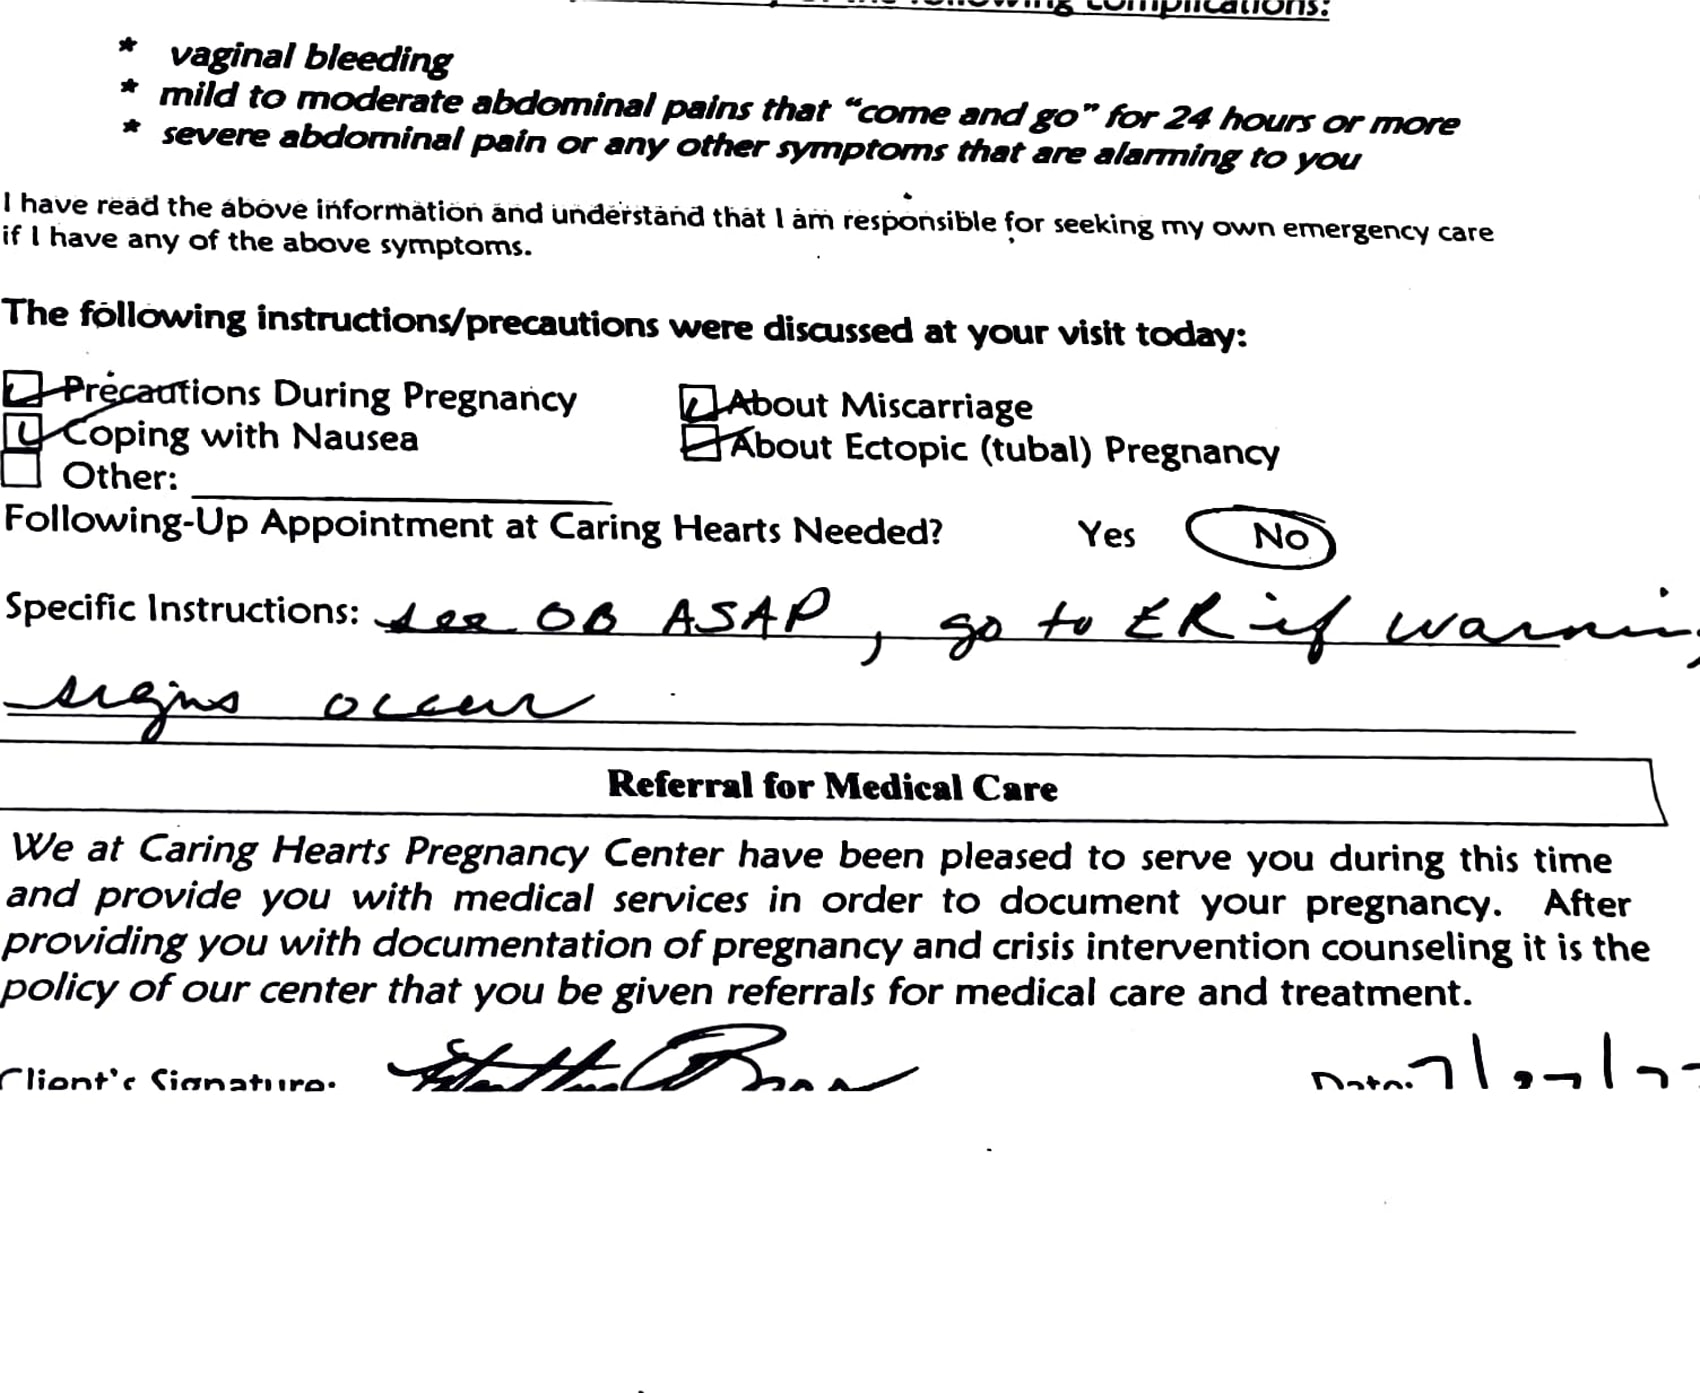 following complications:
* vaginal bleeding
* mild to moderate abdominal pains that “come and go” for 24 hours or more
* severe abdominal pain or any other symptoms that are alarming to you
I have read the above information and understand that I am responsible for seeking my own emergency care
if I have any of the above symptoms.
The following instructions/precautions were discussed at your visit today:
Precautions During Pregnancy About Miscarriage
Coping with Nausea About Ectopic (tubal) Pregnancy
Other:
Following-Up Appointment at Caring Hearts Needed? Yes No
Specific Instructions: see OB ASAP, go to ER if warnin
signs occur
Referral for Medical Care
We at Caring Hearts Pregnancy Center have been pleased to serve you during this time
and provide you with medical services in order to document your pregnancy. After
providing you with documentation of pregnancy and crisis intervention counseling it is the
policy of our center that you be given referrals for medical care and treatment.
Client's Signature: Date: